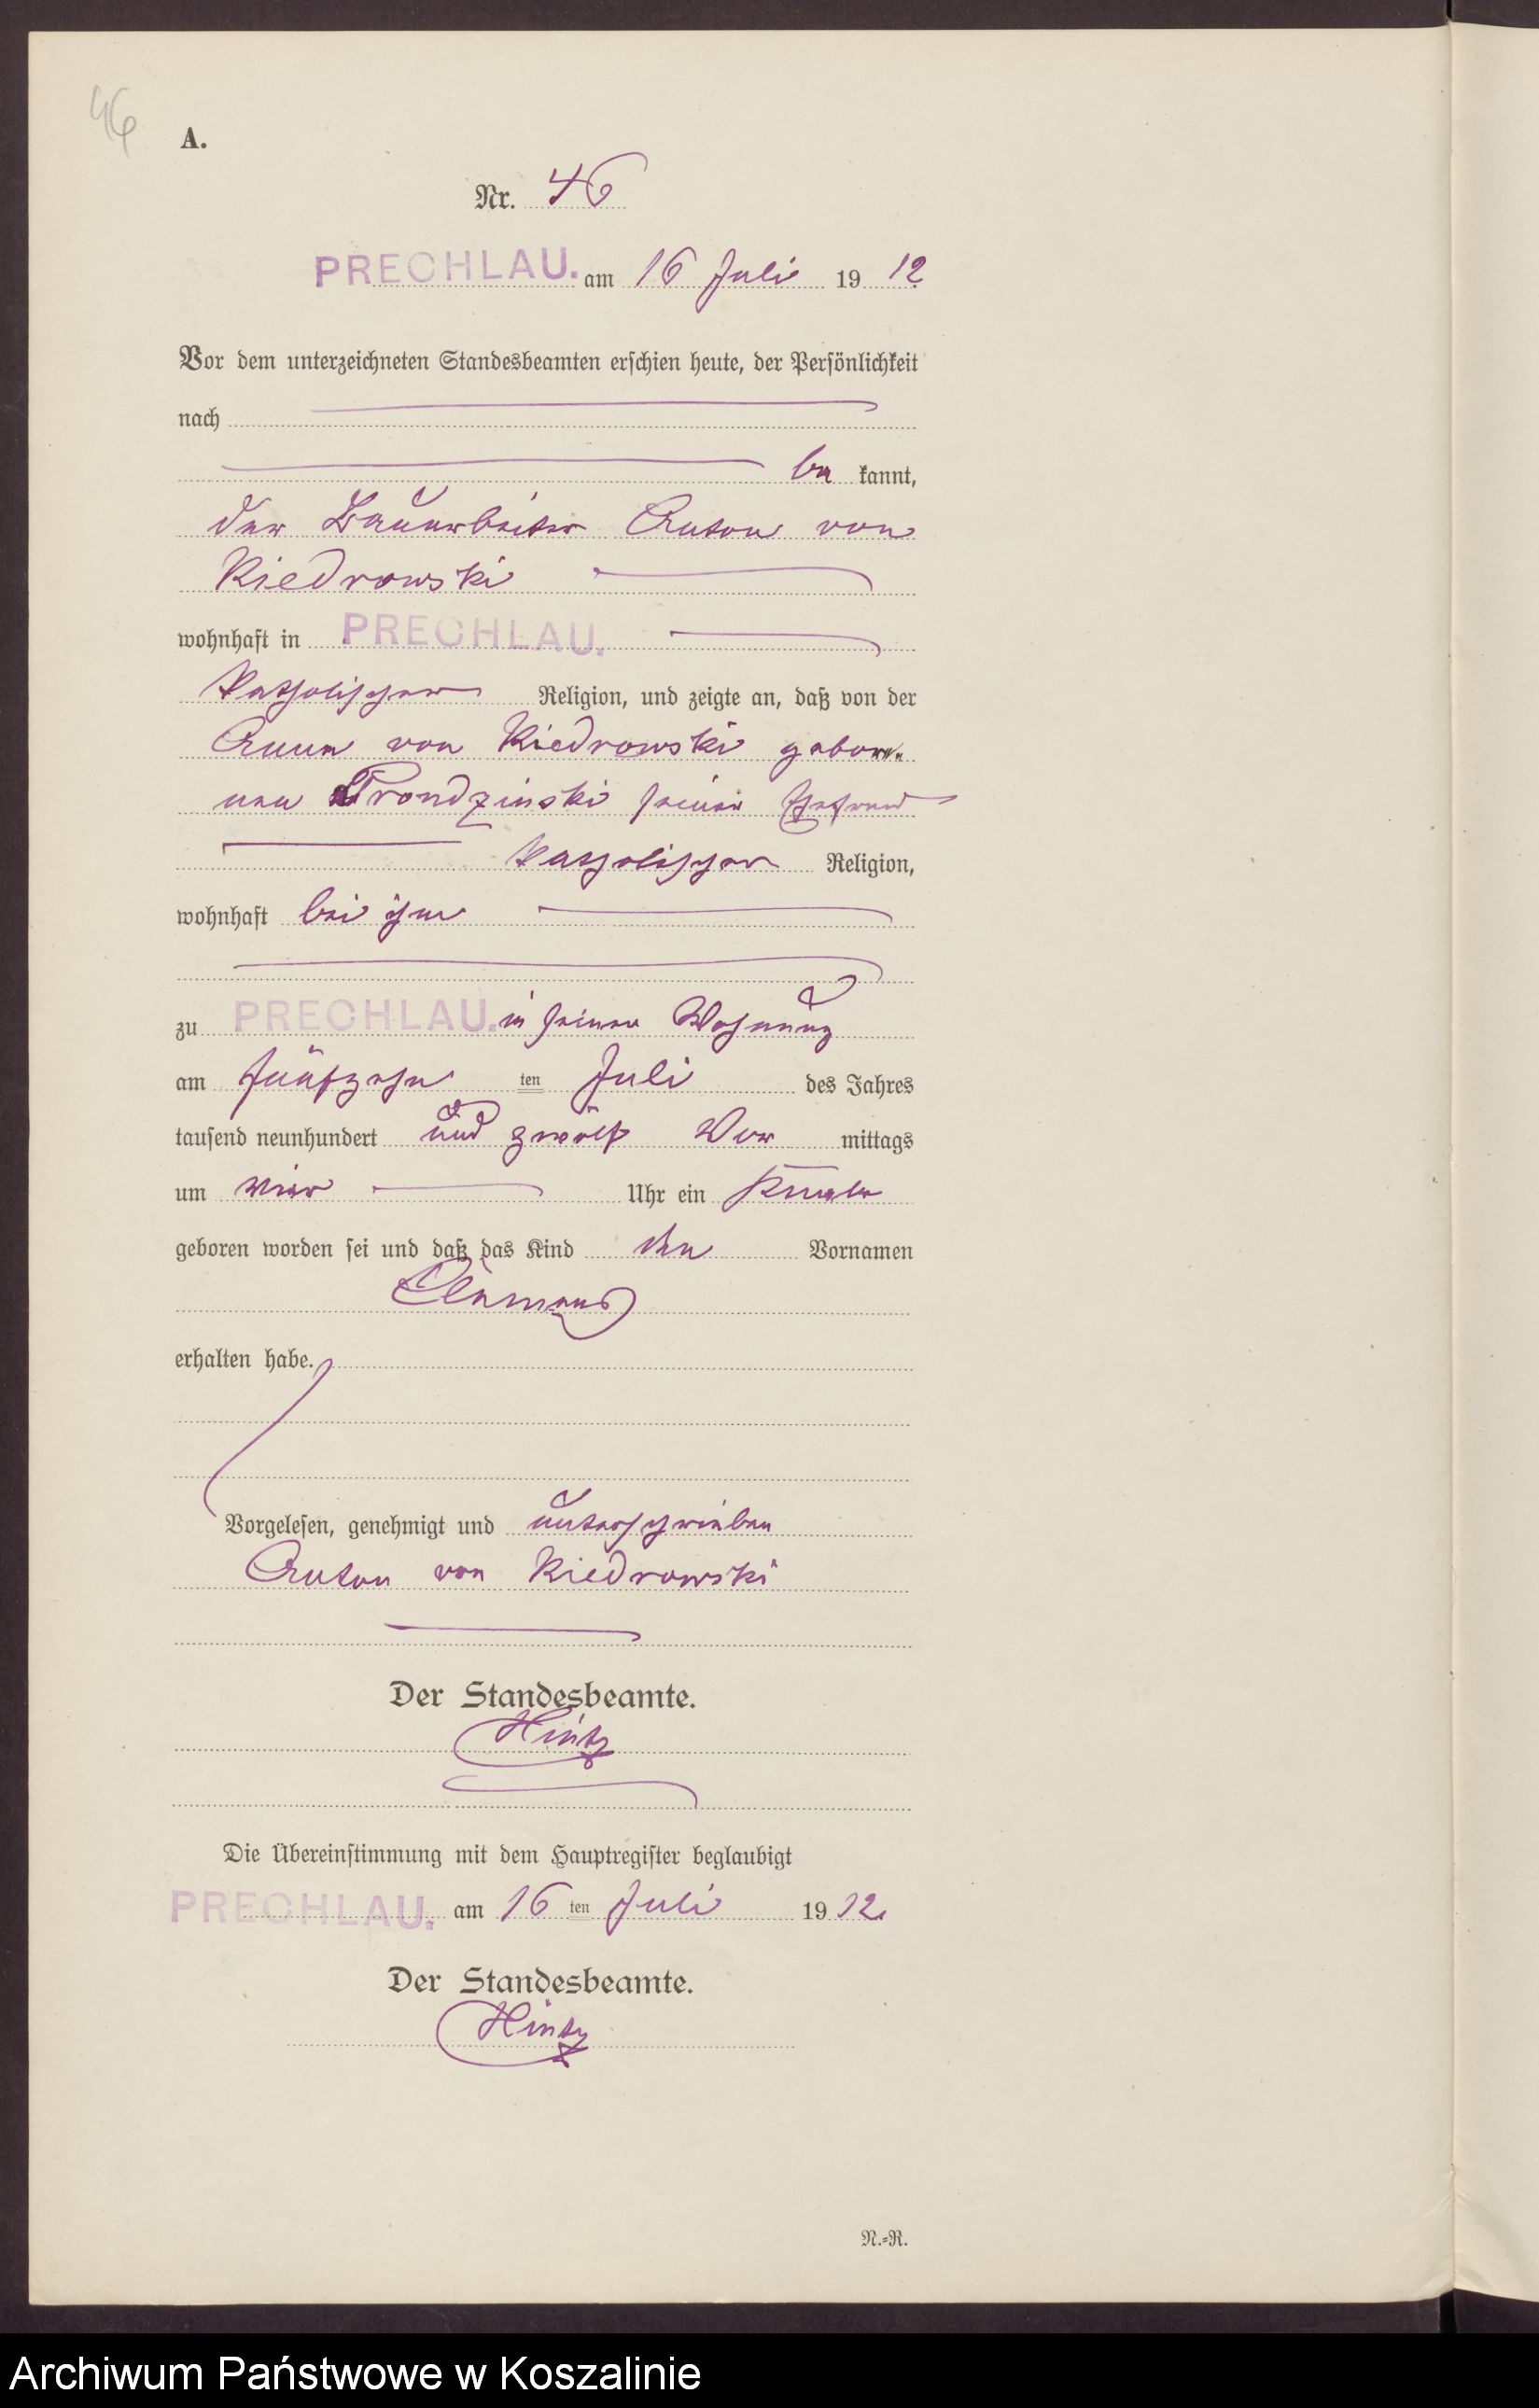 46
A.
Nr. 46
PRECHLAU. am 16 Juli 1912
Vor dem unterzeichneten Standesbeamten erschien heute, der Persönlichkeit
nach
be kannt,
der Bauarbeiter Anton von
Kiedrowski
wohnhaft in PRECHLAU.
katholischer Religion, und zeigte an, daß von der
Anna von Kiedrowski gebore-
nen Prondzinski seiner Ehefrau
katholischer Religion,
wohnhaft bei ihm
zu PRECHLAU. in seiner Wohnung
am fünfzehn ten Juli des Jahres
tausend neunhundert und zwölf Vor mittags
um vier Uhr ein Knabe
geboren worden sei und daß das Kind den Vornamen
Clemens
erhalten habe.
Vorgelesen, genehmigt und unterschrieben
Anton von Kiedrowski
Der Standesbeamte.
Hintz
Die Übereinstimmung mit dem Hauptregister beglaubigt
PRECHLAU. am 16 ten Juli 1912.
Der Standesbeamte.
Hintz
N.=R.
Archiwum Państwowe w Koszalinie